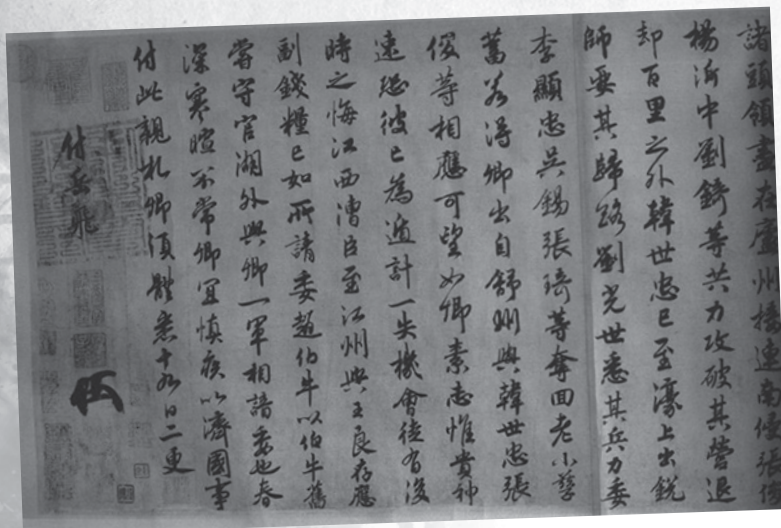 諸頭領盡在廬州接連南侵張俊
楊沂中劉錡等共力攻破其營退
却百里之外韓世忠已至濠上出銳
師要其歸路劉光世悉其兵力委
李顯忠吳錫張琦等奪回老小孳
畜若得卿出自舒州與韓世忠張
俊等相應可望如卿素志惟貴神
速恐彼已為遁計一失機會徒有後
時之悔江西漕臣至江州與王良存應
副錢糧已如所請委趙伯牛以伯牛舊
嘗守官湖外與卿一軍相諳委也春
深寒暄不常卿宜慎疾以濟國事
付此親札卿須體悉十九日二更
付岳飛